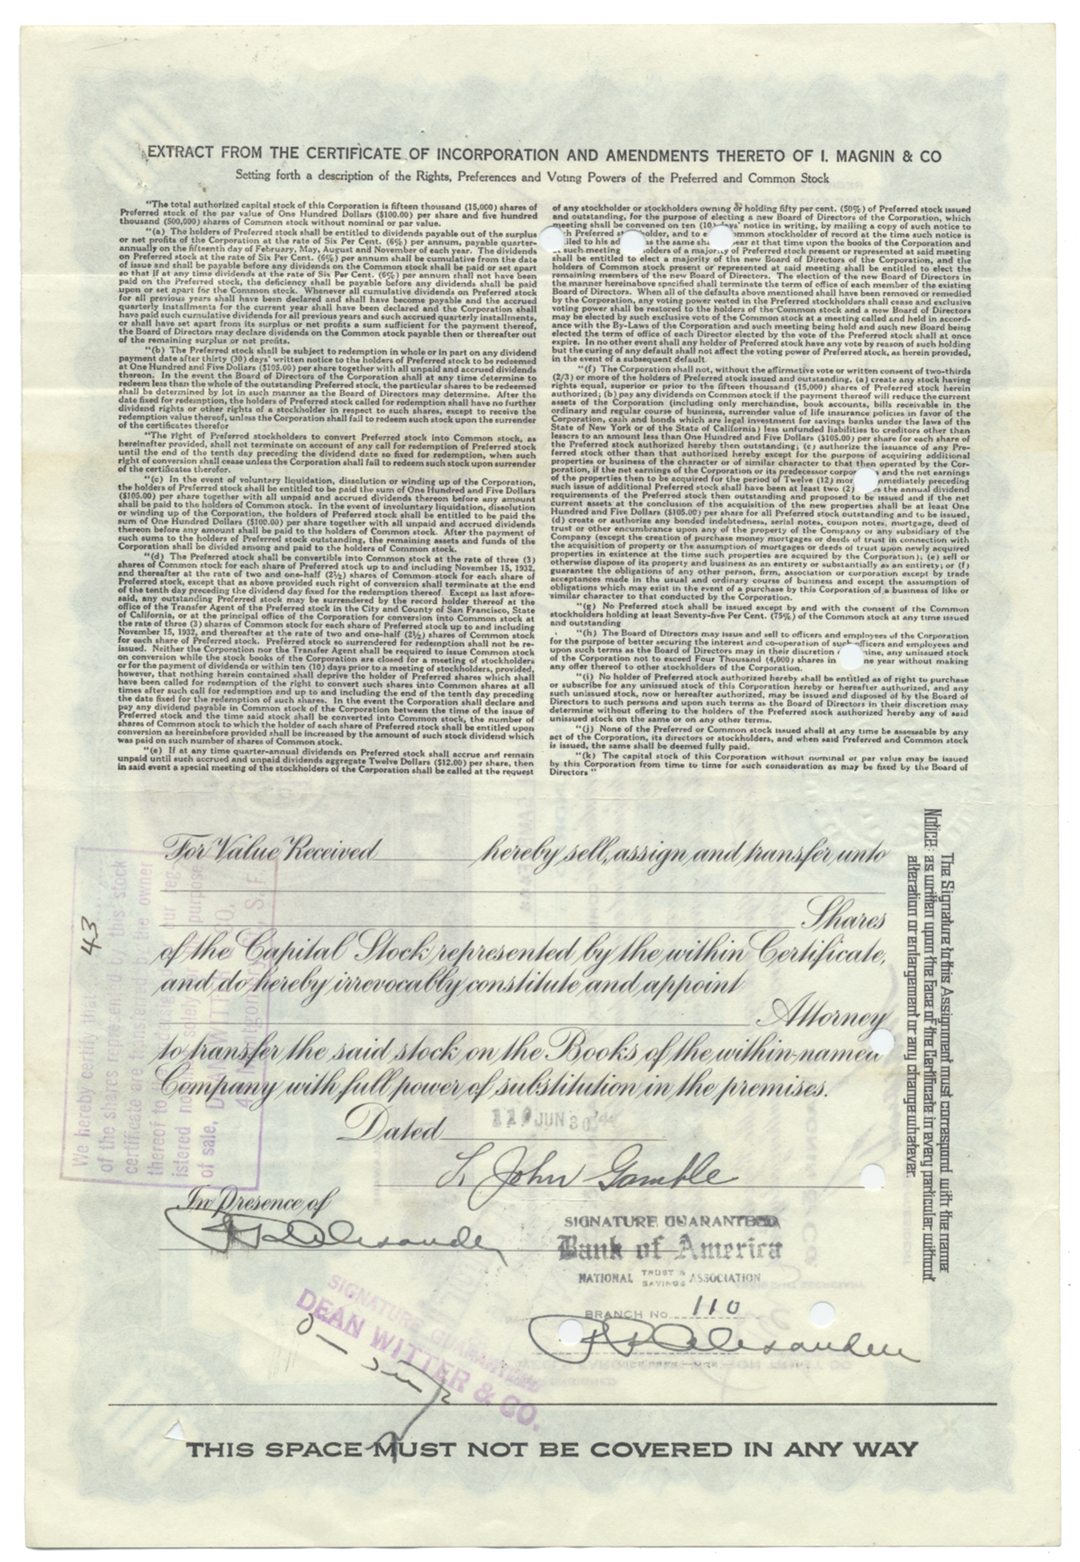 EXTRACT FROM THE CERTIFICATE OF INCORPORATION AND AMENDMENTS THERETO OF I. MAGNIN & CO
Setting forth a description of the Rights, Preferences and Voting Powers of the Preferred and Common Stock
"The total authorized capital stock of this Corporation is fifteen thousand (15,000) shares of
Preferred stock of the par value of One Hundred Dollars ($100.00) per share and five hundred
thousand (500,000) shares of Common stock without nominal or par value.
"(a) The holders of Preferred stock shall be entitled to dividends payable out of the surplus
or net profits of the Corporation at the rate of Six Per Cent. (6%) per annum, payable quarter-
annually on the fifteenth day of February, May, August and November of each year. The dividends
on Preferred stock at the rate of Six Per Cent. (6%) per annum shall be cumulative from the date
of issue and shall be payable before any dividends on the Common stock shall be paid or set apart
so that if at any time dividends at the rate of Six Per Cent. (6%) per annum shall not have been
paid on the Preferred stock, the deficiency shall be payable before any dividends shall be paid
upon or set apart for the Common stock. Whenever all cumulative dividends on Preferred stock
for all previous years shall have been declared and shall have become payable and the accrued
quarterly installments for the current year shall have been declared and the Corporation shall
have paid such cumulative dividends for all previous years and such accrued quarterly installments,
or shall have set apart from its surplus or net profits a sum sufficient for the payment thereof,
the Board of Directors may declare dividends on the Common stock payable then or thereafter out
of the remaining surplus or net profits.
"(b) The Preferred stock shall be subject to redemption in whole or in part on any dividend
payment date after thirty (30) days' written notice to the holders of Preferred stock to be redeemed
at One Hundred and Five Dollars ($105.00) per share together with all unpaid and accrued dividends
thereon. In the event the Board of Directors of the Corporation shall at any time determine to
redeem less than the whole of the outstanding Preferred stock, the particular shares to be redeemed
shall be determined by lot in such manner as the Board of Directors may determine. After the
date fixed for redemption, the holders of Preferred stock called for redemption shall have no further
dividend rights or other rights of a stockholder in respect to such shares, except to receive the
redemption value thereof, unless the Corporation shall fail to redeem such stock upon the surrender
of the certificates therefor
"The right of Preferred stockholders to convert Preferred stock into Common stock, as
hereinafter provided, shall not terminate on account of any call for redemption of Preferred stock
until the end of the tenth day preceding the dividend date so fixed for redemption, when such
right of conversion shall cease unless the Corporation shall fail to redeem such stock upon surrender
of the certificates therefor.
"(c) In the event of voluntary liquidation, dissolution or winding up of the Corporation,
the holders of Preferred stock shall be entitled to be paid the sum of One Hundred and Five Dollars
($105.00) per share together with all unpaid and accrued dividends thereon before any amount
shall be paid to the holders of Common stock. In the event of involuntary liquidation, dissolution
or winding up of the Corporation, the holders of Preferred stock shall be entitled to be paid the
sum of One Hundred Dollars ($100.00) per share together with all unpaid and accrued dividends
before any amount shall be paid to the holders of Common stock. After the payment of
such sums to the holders of Preferred stock outstanding, the remaining assets and funds of the
Corporation shall be divided among and paid to the holders of Common stock.
"(d) The Preferred stock shall be convertible into Common stock at the rate of three (3)
shares of Common stock for each share of Preferred stock up to and including November 15, 1932,
and thereafter at the rate of two and one-half (2½) shares of Common stock for each share of
Preferred stock, except that as above provided such right of conversion shall terminate at the end
of the tenth day preceding the dividend day fixed for the redemption thereof. Except as last afore-
said, any outstanding Preferred stock may be surrendered by the record holder thereof at the
office of the Transfer Agent of the Preferred stock in the City and County of San Francisco, State
of California, or at the principal office of the Corporation for conversion into Common stock at
the rate of three (3) shares of Common stock for each share of Preferred stock up to and including
November 15, 1932, and thereafter at the rate of two and one-half (2½) shares of Common stock
for each share of Preferred stock. Preferred stock so surrendered for redemption shall not be re-
issued. Neither the Corporation nor the Transfer Agent shall be required to issue Common stock
on conversion while the stock books of the Corporation are closed for a meeting of stockholders
or for the payment of dividends or within ten (10) days prior to a meeting of stockholders, provided,
however, that nothing herein contained shall deprive the holder of Preferred shares which shall
have been called for redemption of the right to convert such shares into Common shares at all
times after such call for redemption and up to and including the end of the tenth day preceding
the date fixed for the redemption of such shares. In the event the Corporation shall declare and
pay any dividend in Common stock of the Corporation between the time of the issue of
Preferred stock and the time said stock shall be converted into Common stock, the number of
shares of Common stock to which the holder of each share of Preferred stock shall be entitled upon
conversion as hereinbefore provided shall be increased by the amount of such stock dividend which
was paid on such number of shares of Common stock.
"(e) If at any time quarter-annual dividends on Preferred stock shall accrue and remain
unpaid until such accrued and unpaid dividends aggregate Twelve Dollars ($12.00) per share, then
in said event a special meeting of the stockholders of the Corporation shall be called at the request
of any stockholder or stockholders owning or holding fifty per cent. (50%) of Preferred stock issued
and outstanding, for the purpose of electing a new Board of Directors of the Corporation, which
meeting shall be convened on ten (10) days' notice in writing, by mailing a copy of such notice to
Preferred holder, and to Common stockholder of record at the time such notice is
to his as the same shall appear at that time upon the books of the Corporation and
such meeting holders of a majority of Preferred stock present or represented at said meeting
shall be entitled to elect a majority of the new Board of Directors of the Corporation, and the
holders of Common stock present or represented at said meeting shall be entitled to elect the
remaining members of the new Board of Directors. The election of the new Board of Directors in
the manner hereinabove specified shall terminate the term of office of each member of the existing
Board of Directors. When all of the defaults above mentioned shall have been removed or remedied
by the Corporation, any voting power vested in the Preferred stockholders shall cease and exclusive
voting power shall be restored to the holders of the Common stock and a new Board of Directors
may be elected by such exclusive vote of the Common stock at a meeting called and held in accord-
ance with the By-Laws of the Corporation and such meeting being held and such new Board being
elected the term of office of each Director elected by the vote of the Preferred stock shall at once
expire. In no other event shall any holder of Preferred stock have any vote by reason of such holding
but the curing of any default shall not affect the voting power of Preferred stock, as herein provided,
in the event of a subsequent default.
"(f) The Corporation shall not, without the affirmative vote or written consent of two-thirds
(2/3) or more of the holders of Preferred stock issued and outstanding, (a) create any stock having
rights equal, superior or prior to the fifteen thousand (15,000) shares of Preferred stock herein
authorized; (b) pay any dividends on Common stock if the payment thereof will reduce the current
assets of the Corporation (including only merchandise, book accounts, bills receivable in the
ordinary and regular course of business, surrender value of life insurance policies in favor of the
Corporation, cash and bonds which are legal investment for savings banks under the laws of the
State of New York or of the State of California) less unfunded liabilities to creditors other than
lessors to an amount less than One Hundred and Five Dollars ($105.00) per share for each share of
the Preferred stock authorized hereby then outstanding; (c) authorize the issuance of any Pre-
ferred stock other than that authorized hereby except for the purpose of acquiring additional
properties or business of the character or of similar character to that then operated by the Cor-
poration, if the net earnings of the Corporation or its predecessor corporation and the net earnings
of the properties then to be acquired for the period of Twelve (12) months immediately preceding
such issue of additional Preferred stock shall have been at least two (2) times the annual dividend
requirements of the Preferred stock then outstanding and proposed to be issued and if the net
current assets at the conclusion of the acquisition of the new properties shall be at least One
Hundred and Five Dollars ($105.00) per share for all Preferred stock outstanding and to be issued,
(d) create or authorize any bonded indebtedness, serial notes, coupon notes, mortgage, deed of
trust or other encumbrance upon any of the property of the Company or any subsidiary of the
Company (except the creation of purchase money mortgages or deeds of trust in connection with
the acquisition of property or the assumption of mortgages or deeds of trust upon newly acquired
properties in existence at the time such properties are acquired by the Corporation); (e) sell or
otherwise dispose of its property and business as an entirety or substantially as an entirety; or (f)
guarantee the obligations of any other person, firm, association or corporation except by trade
acceptances made in the usual and ordinary course of business and except the assumption of
obligations which may exist in the event of a purchase by this Corporation of a business of like or
similar character to that conducted by the Corporation.
"(g) No Preferred stock shall be issued except by and with the consent of the Common
stockholders holding at least Seventy-five Per Cent. (75%) of the Common stock at any time issued
and outstanding
"(h) The Board of Directors may issue and sell to officers and employees of the Corporation
for the purpose of better securing the interest and co-operation of such officers and employees and
upon such terms as the Board of Directors may in their discretion determine, any unissued stock
of the Corporation not to exceed Four Thousand (4,000) shares in one year without making
any offer thereof to other stockholders of the Corporation.
"(i) No holder of Preferred stock authorized hereby shall be entitled as of right to purchase
or subscribe for any unissued stock of this Corporation hereby or hereafter authorized, and any
such unissued stock, now or hereafter authorized, may be issued and disposed of by the Board of
Directors to such persons and upon such terms as the Board of Directors in their discretion may
determine without offering to the holders of the Preferred stock authorized hereby any of said
unissued stock on the same or on any other terms.
"(j) None of the Preferred or Common stock issued shall at any time be assessable by any
act of the Corporation, its directors or stockholders, and when said Preferred and Common stock
is issued, the same shall be deemed fully paid.
"(k) The capital stock of this Corporation without nominal or par value may be issued
by this Corporation from time to time for such consideration as may be fixed by the Board of
Directors"
For Value Received hereby sell, assign and transfer unto
Shares
of the Capital Stock represented by the within Certificate,
and do hereby irrevocably constitute and appoint
Attorney
to transfer the said stock on the Books of the within-named
Company with full power of substitution in the premises.
Dated 119 JUN 30 '44
L. John Gamble
In Presence of
SIGNATURE GUARANTEED
Bank of America
NATIONAL TRUST & SAVINGS ASSOCIATION
BRANCH No. 110
SIGNATURE GUARANTEED
DEAN WITTER & CO.
THIS SPACE MUST NOT BE COVERED IN ANY WAY
43
We hereby certify that
of the shares represented by this stock
certificate are transferred by the owner
thereof to
istered solely purpose
of sale. DEAN WITTER & CO.
Notice: The Signature to this Assignment must correspond with the name
as written upon the face of the Certificate in every particular, without
alteration or enlargement or any change whatever.